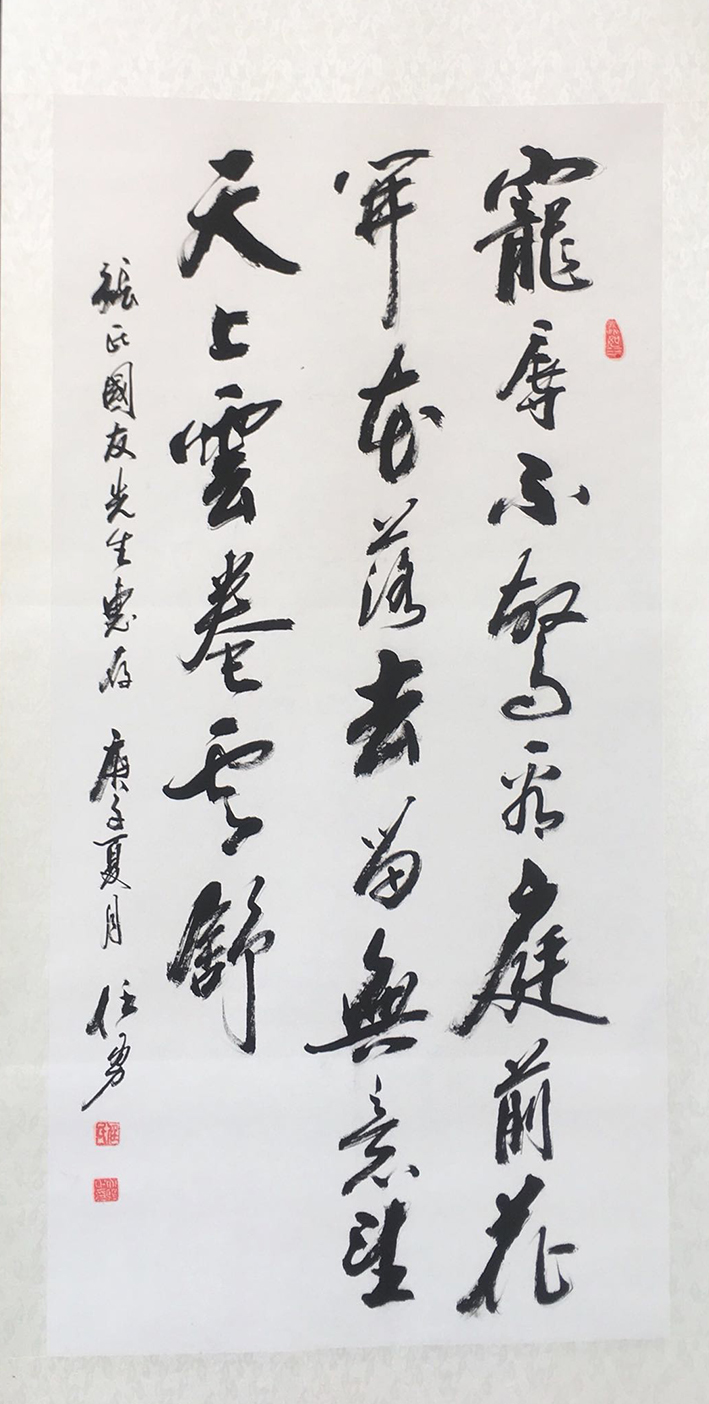 寵辱不驚看庭前花
開花落去留無意望
天上雲卷雲舒
張氏國友先生惠存 庚子夏月 任勇